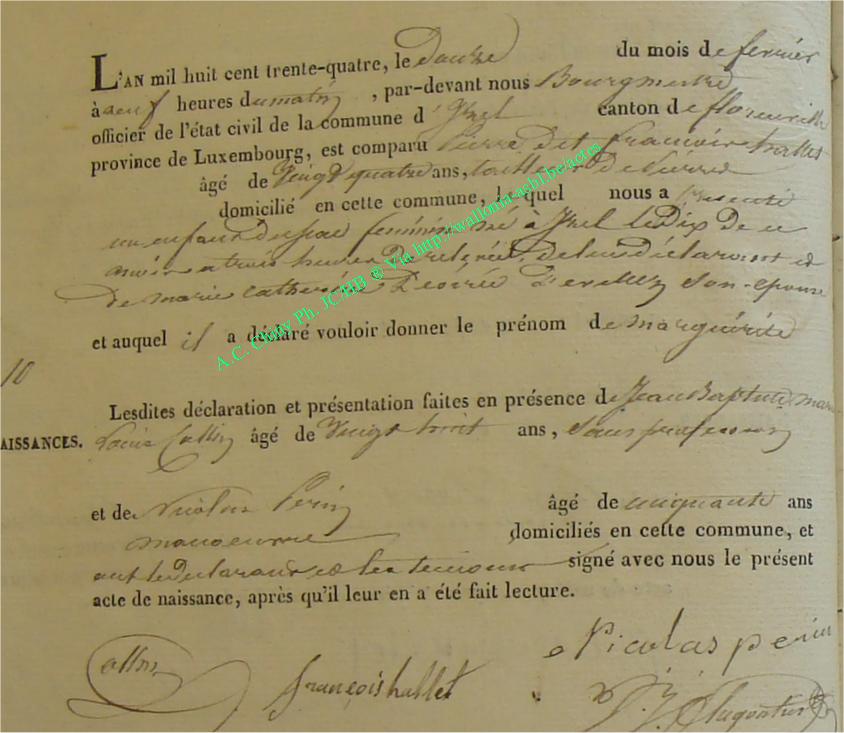 L'AN mil huit cent trente-quatre, le Douze du mois de fevrier
à neuf heures du matin, par-devant nous Bourgmestre
officier de l'état civil de la commune d'Izel canton de florenville
province de Luxembourg, est comparu Pierre dit françois hallet
âgé de Vingt quatre ans, tailleur De Pierre
domicilié en cette commune, lequel nous a presenté
un enfant du sexe feminin né à Izel le Dix de ce
mois a trois heures De relevée, de lui déclarant et
De marie catherine Son epouse
et auquel il a déclaré vouloir donner le prénom de marguerite
10
Lesdites déclaration et présentation faites en présence de Jean Baptiste
AISSANCES. Louis Collin âgé de Vingt huit ans, Sans profession
et de Nicolas Perin âgé de cinquante ans
manoeuvre domiciliés en cette commune, et
ont le Declarant et les temoins signé avec nous le présent
acte de naissance, après qu'il leur en a été fait lecture.
Collin françois hallet Nicolas perin
A.C. Chiny Ph. JC/HB ® Via http://wallonia-asbl.be/actes